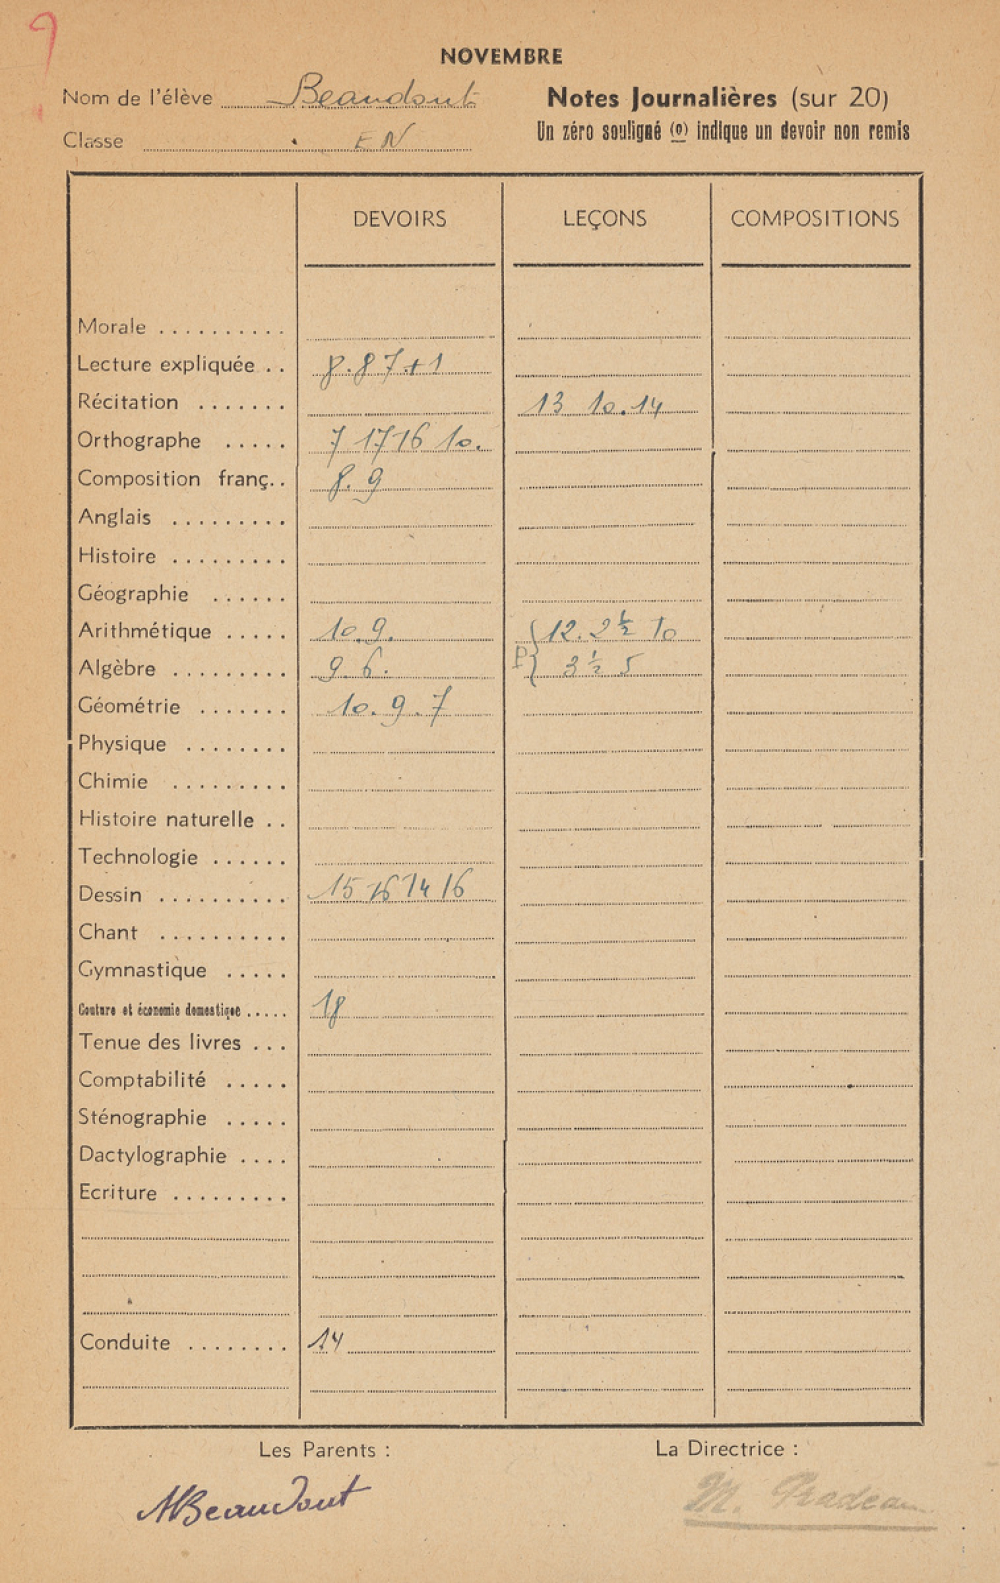 9
NOVEMBRE
Nom de l'élève Beaudout
Notes Journalières (sur 20)
Classe E N
Un zéro souligné (o) indique un devoir non remis
DEVOIRS LEÇONS COMPOSITIONS
Morale ..........
Lecture expliquée .. 8.8 7+1
Récitation ....... 13 10.14
Orthographe ..... 7 17 16 10.
Composition franç.. 8. 9
Anglais .........
Histoire .........
Géographie ......
Arithmétique ..... 10.9. {12. 2 ½ 10
Algèbre ......... 9.6. P{ 3 ½ 5
Géométrie ....... 10. 9. 7
Physique ........
Chimie .........
Histoire naturelle ..
Technologie ......
Dessin .......... 15 16 14 16
Chant ..........
Gymnastique .....
Couture et économie domestique ..... 18
Tenue des livres ...
Comptabilité .....
Sténographie .....
Dactylographie ....
Ecriture .........
Conduite ........ 14
Les Parents : La Directrice :
MBeaudout M. Pradeau